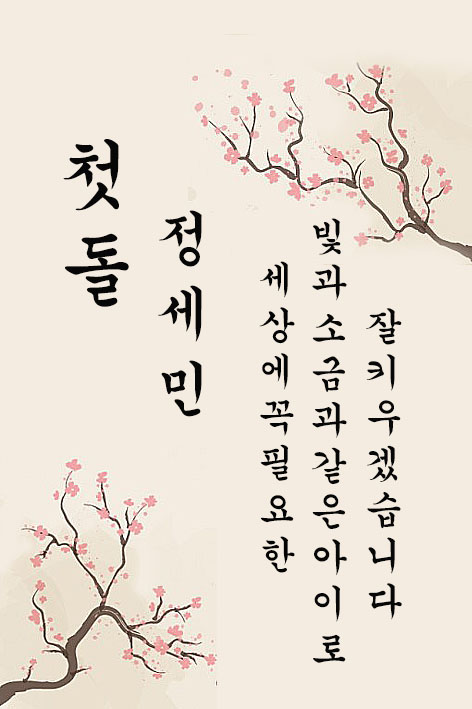 첫돌
정세민
세상에꼭필요한
빛과소금과같은아이로
잘키우겠습니다